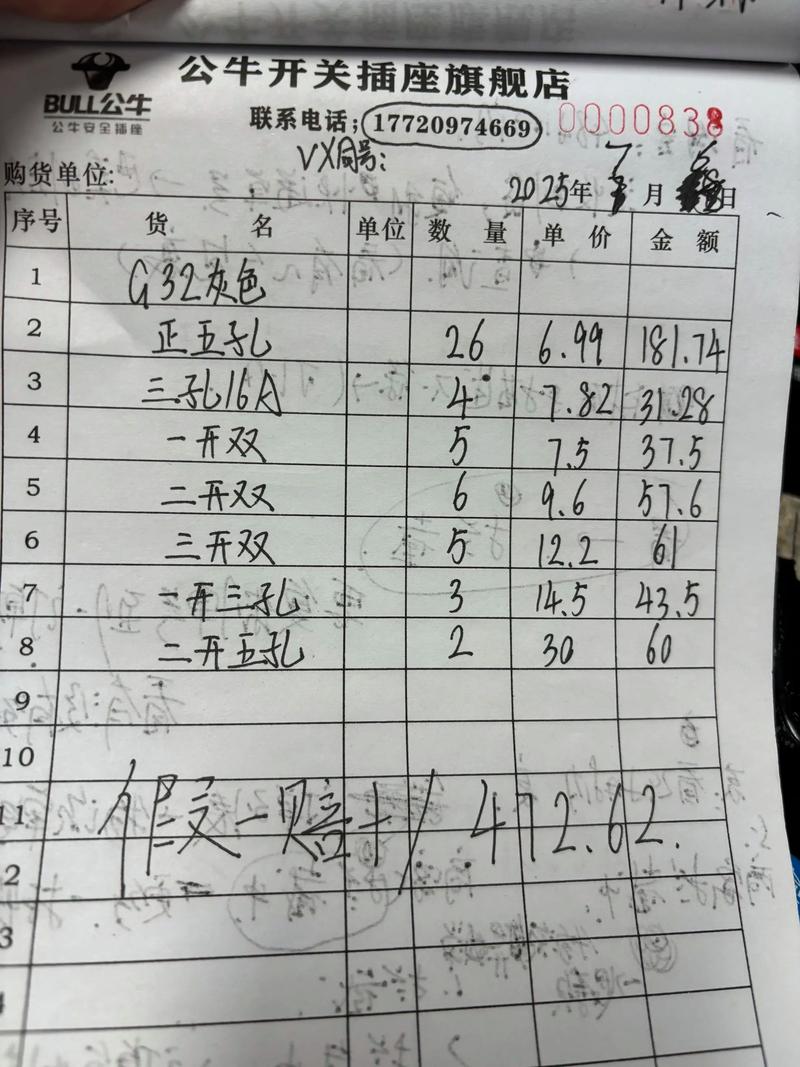 公牛开关插座旗舰店
BULL公牛
公牛安全插座
联系电话;17720974669 0000838
VX同号:
购货单位: 2025年 7月 6日
序号 货 名 单位 数 量 单 价 金 额
1 G32灰色
2 正五孔 26 6.99 181.74
3 三孔16A 4 7.82 31.28
4 一开双 5 7.5 37.5
5 二开双 6 9.6 57.6
6 三开双 5 12.2 61
7 一开三孔 3 14.5 43.5
8 二开五孔 2 30 60
9
10
11 假一赔十/ 472.62.
2
3